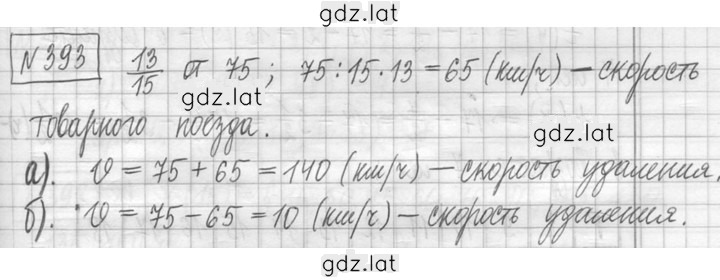 gdz.lat
N 393 13/15 от 75; 75:15·13=65 (км/ч) – скорость
gdz.lat
товарного поезда.
gdz.lat
а). V = 75+65=140 (км/ч) – скорость удаления.
б). V = 75-65=10 (км/ч) – скорость удаления.
gdz.lat